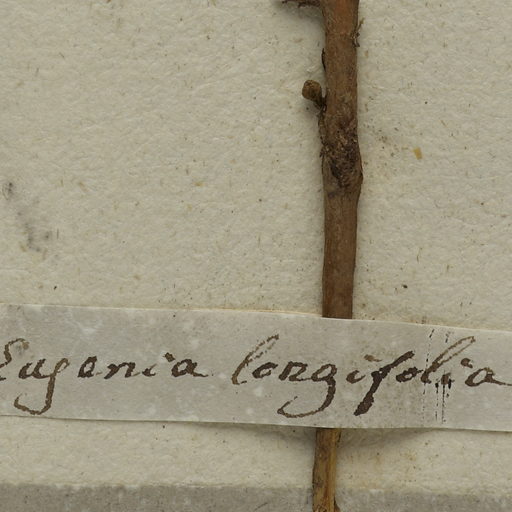 Eugenia longifolia